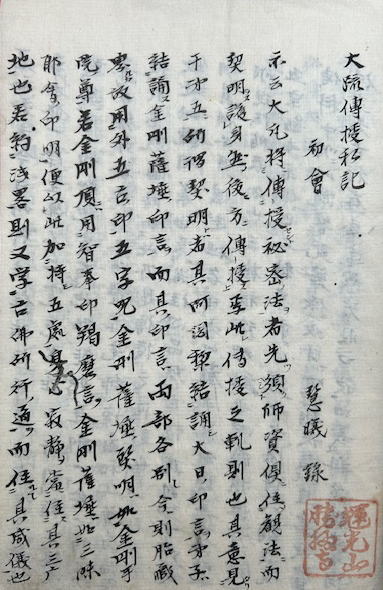 大流傳授私記
初會
慧曦錄
示云大凡將傳授祕密法者先須師資俱住観法而
契明護身並後方傳授事此傳授之軌則也其意見
于才五所謂契明者具阿闍梨結誦大日印言弟子
結誦金剛薩埵印言而其印言兩部各別今則胎藏
界故用外五古印五字呪金剛薩埵契明如金剛手
院尊若金剛頂用智拳印羯磨言金剛薩埵如三昧
耶會印明便以此加持五處身心寂静當住其三
地也若約浅畧則又学古佛所行道而住其威儀也